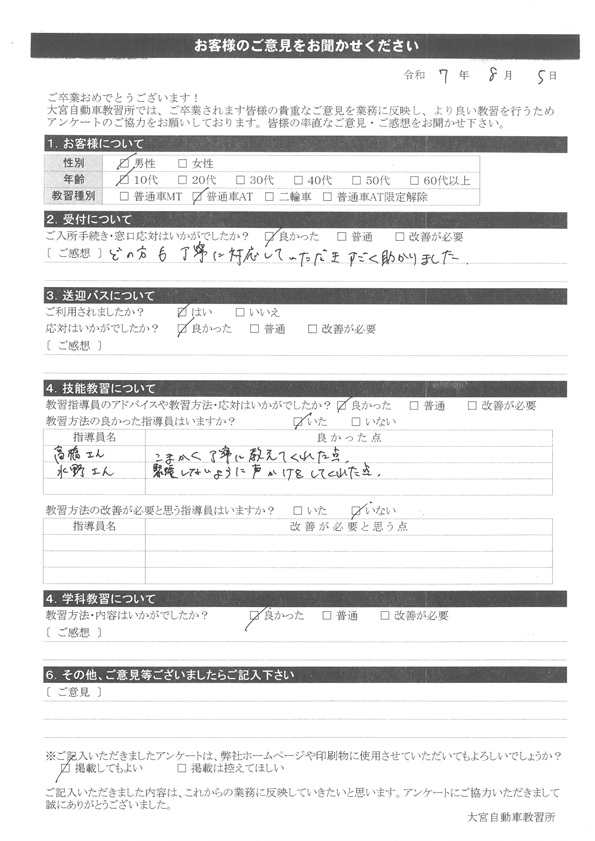 お客様のご意見をお聞かせください
令和 7 年 8 月 5 日
ご卒業おめでとうございます！
大宮自動車教習所では、ご卒業されます皆様の貴重なご意見を業務に反映し、より良い教習を行うため
アンケートのご協力をお願いしております。皆様の率直なご意見・ご感想をお聞かせ下さい。
1. お客様について
性別 ☑ 男性 □ 女性
年齢 ☑ 10代 □ 20代 □ 30代 □ 40代 □ 50代 □ 60代以上
教習種別 □ 普通車MT ☑ 普通車AT □ 二輪車 □ 普通車AT限定解除
2. 受付について
ご入所手続き・窓口応対はいかがでしたか？ ☑ 良かった □ 普通 □ 改善が必要
［ ご感想 ］ どの方も丁寧に対応していただきすごく助かりました.
3. 送迎バスについて
ご利用されましたか？ ☑ はい □ いいえ
応対はいかがでしたか？ ☑ 良かった □ 普通 □ 改善が必要
［ ご感想 ］
4. 技能教習について
教習指導員のアドバイスや教習方法・応対はいかがでしたか？ ☑ 良かった □ 普通 □ 改善が必要
教習方法の良かった指導員はいますか？ ☑ いた □ いない
指導員名 良かった点
高橋さん こまかく丁寧に教えてくれた点.
水野さん 緊張しないように声かけをしてくれた点.
教習方法の改善が必要と思う指導員はいますか？ □ いた ☑ いない
指導員名 改善が必要と思う点
4. 学科教習について
教習方法・内容はいかがでしたか？ ☑ 良かった □ 普通 □ 改善が必要
［ ご感想 ］
6. その他、ご意見等ございましたらご記入下さい
［ ご意見 ］
※ご記入いただきましたアンケートは、弊社ホームページや印刷物に使用させていただいてもよろしいでしょうか？
☑ 掲載してもよい □ 掲載は控えてほしい
ご記入いただきました内容は、これからの業務に反映していきたいと思います。アンケートにご協力いただきまして
誠にありがとうございました。
大宮自動車教習所